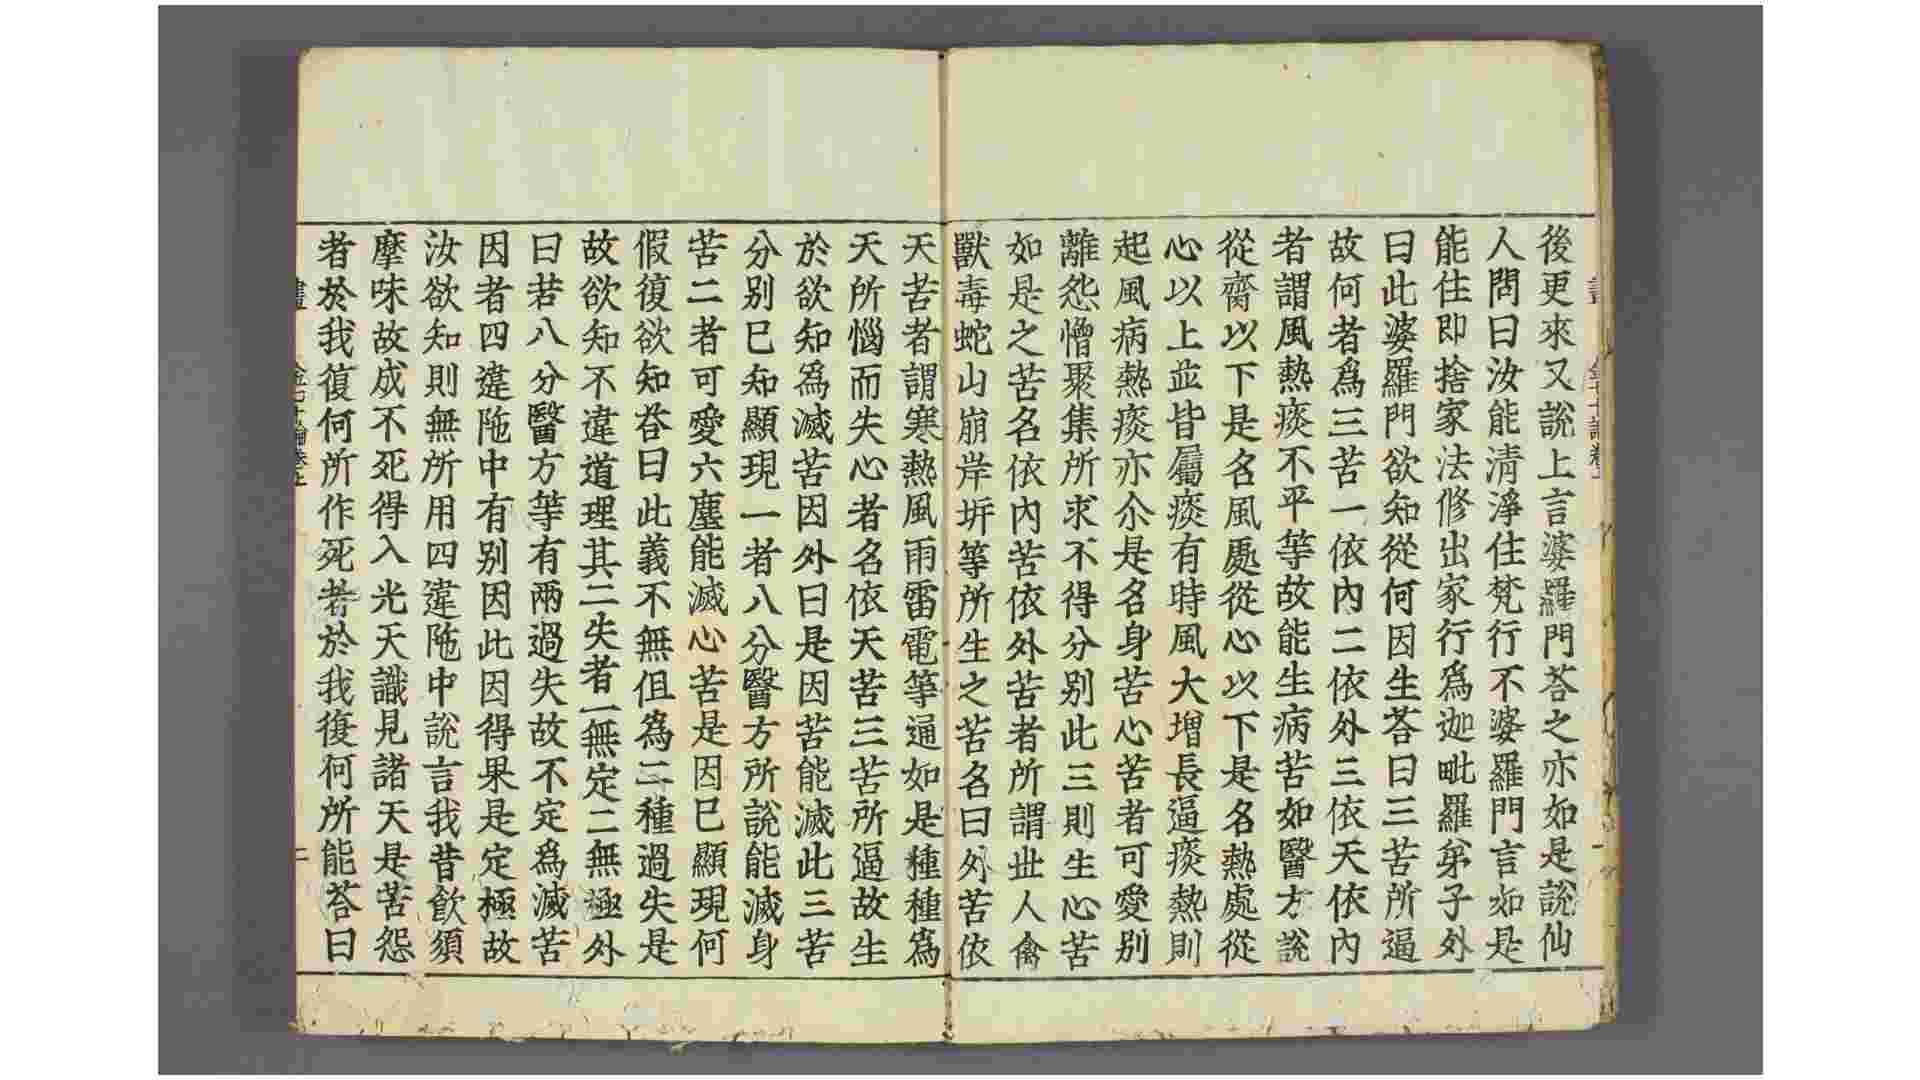 後更來又說上言婆羅門荅之亦如是說仙
人問曰汝能清淨住梵行不婆羅門言如是
能住即捨家法修出家行爲迦毗羅弟子外
曰此婆羅門欲知從何因生荅曰三苦所逼
故何者爲三苦一依內二依外三依天依內
者謂風熱痰不平等故能生病苦如醫方說
從臍以下是名風處從心以下是名熱處從
心以上並皆屬痰有時風大增長逼痰熱則
起風病熱痰亦尒是名身苦心苦者可愛別
離怨憎聚集所求不得分別此三則生心苦
如是之苦名依內苦依外苦者所謂世人禽
獸毒蛇山崩岸坼等所生之苦名曰外苦依
天苦者謂寒熱風雨雷電等通如是種種爲
天所惱而失心者名依天苦三苦所逼故生
於欲知爲滅苦因外曰是因苦能滅此三苦
分別巳知顯現一者八分醫方所說能滅身
苦二者可愛六塵能滅心苦是因巳顯現何
假復欲知荅曰此義不無但爲二種過失是
故欲知不違道理其二失者一無定二無極外
曰若八分醫方等有兩過失故不定爲滅苦
因者四違陁中有別因此因得果是定極故
汝欲知則無所用四違陁中說言我昔飲須
摩味故成不死得入光天識見諸天是苦怨
者於我復何所作死者於我復何所能荅曰
畫
金七十論卷上